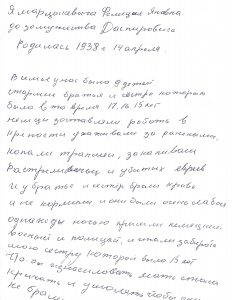 Я марцинкевича Фелиция Яновна
до замужества Даспировига
Родилась 1938 г 14 апреля.
В ... у нас было 9 детей
старшие братья и сестра которым
было в то время 17. 16 15 лет
немцы заставляли работь в
крепости ухаживали за ранеными,
копали траншеи, закапывали
Растрелянных и убитых евреев
И у братье и сестер брали кровь
и не кормили и они были очень слабые
однажды ночью пришли немецкий
военный и полицай, и стали забирать
мою сестру которой было 15 лет
что бы изнасиловать мать стала
кричать и умолять чтобы они
не брали